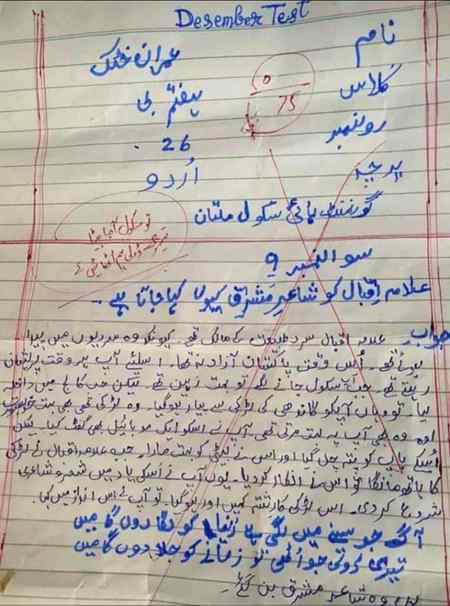 Desember Test
نام عمران خٹک
کلاس ہفتم بی
رولنمبر 26
0
75
پرچہ اُردو
گورنمنٹ ہائی سکول ملتان
تو سکول آ جا بیٹا
سوالنمبر 9
علامہ اقبال کو شاعرِ مشرق کیوں کہا جاتا ہے۔
جواب علامہ اقبال سرد طبیعت کے مالک تھے۔ کیونکہ وہ سردیوں میں پیدا
ہوئے تھے۔ اُس وقت پاکستان آزاد نہ تھا۔ اسلئے آپ ہر وقت پریشان
رہتے تھے۔ جب سکول جانے لگے تو بہت ذہین تھے۔ لیکن جب کالج میں داخلہ
لیا۔ تو وہاں آپکو گاندھی کی لڑکی سے پیار ہوگیا۔ وہ لڑکی بھی بہت خوبصورت
وہ بھی آپ پہ بہت مرتی تھی آپ نے اسکو ایک موبائیل بھی گفٹ کیا۔ لیکن
اُسکے باپ کو پتہ چل گیا اور اس نے بیٹی کو بہت مارا۔ جب علامہ اقبال نے لڑکی
کا ہاتھ مانگا تو اس نے انکار کر دیا۔ یوں آپ نے اُسکی یاد میں شعر و شاعری
شروع کر دی۔ اس لڑکی کا رشتہ کہیں اور ہو گیا۔ تو آپ نے اس انداز میں کہا
آگ جو سینے میں لگی ہے دنیا کو دکھا دوں گا میں
تیری ڈولی جو اُٹھی تو زمانے کو جلا دوں گا میں
وہ شاعر مشرق بن گئے۔